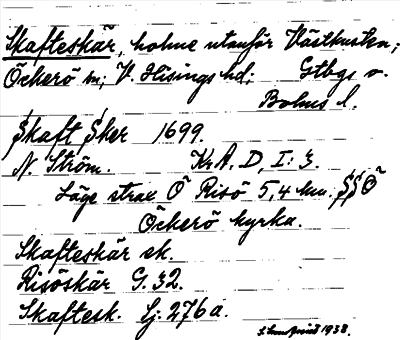 Skafteskär, holme utanför Västkusten;
Öckerö sn; V. Hisings hd; Gtbgs o.
Bohus l.
Skaft Sker 1699.
N. Ström. KrA. D, I: 3.
Läge strax Ö Risö 5,4 km. SSÖ
Öckerö kyrka.
Skafteskär ek.
Risöskär G. 32.
Skaftesk. Lj. 276a.
1938.